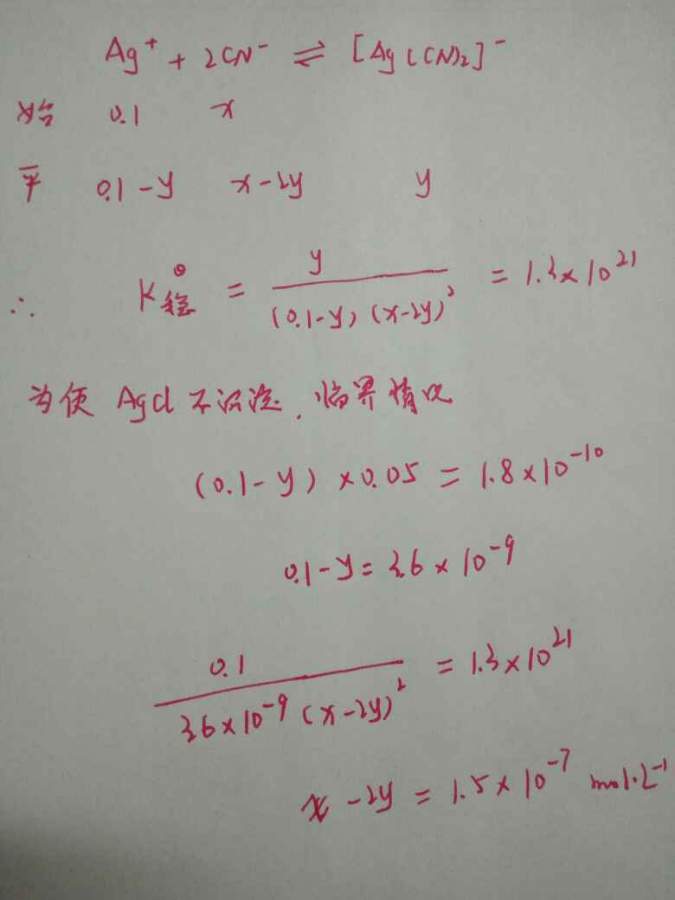 Ag⁺ + 2CN⁻ ⇌ [Ag(CN)₂]⁻
始 0.1 x
平 0.1-y x-2y y
∴ K稳^θ = y / (0.1-y)(x-2y)² = 1.3×10²¹
为使 AgCl 不沉淀, 临界情况
(0.1-y)×0.05 = 1.8×10⁻¹⁰
0.1-y = 3.6×10⁻⁹
0.1 / 3.6×10⁻⁹(x-2y)² = 1.3×10²¹
x-2y = 1.5×10⁻⁷ mol·L⁻¹